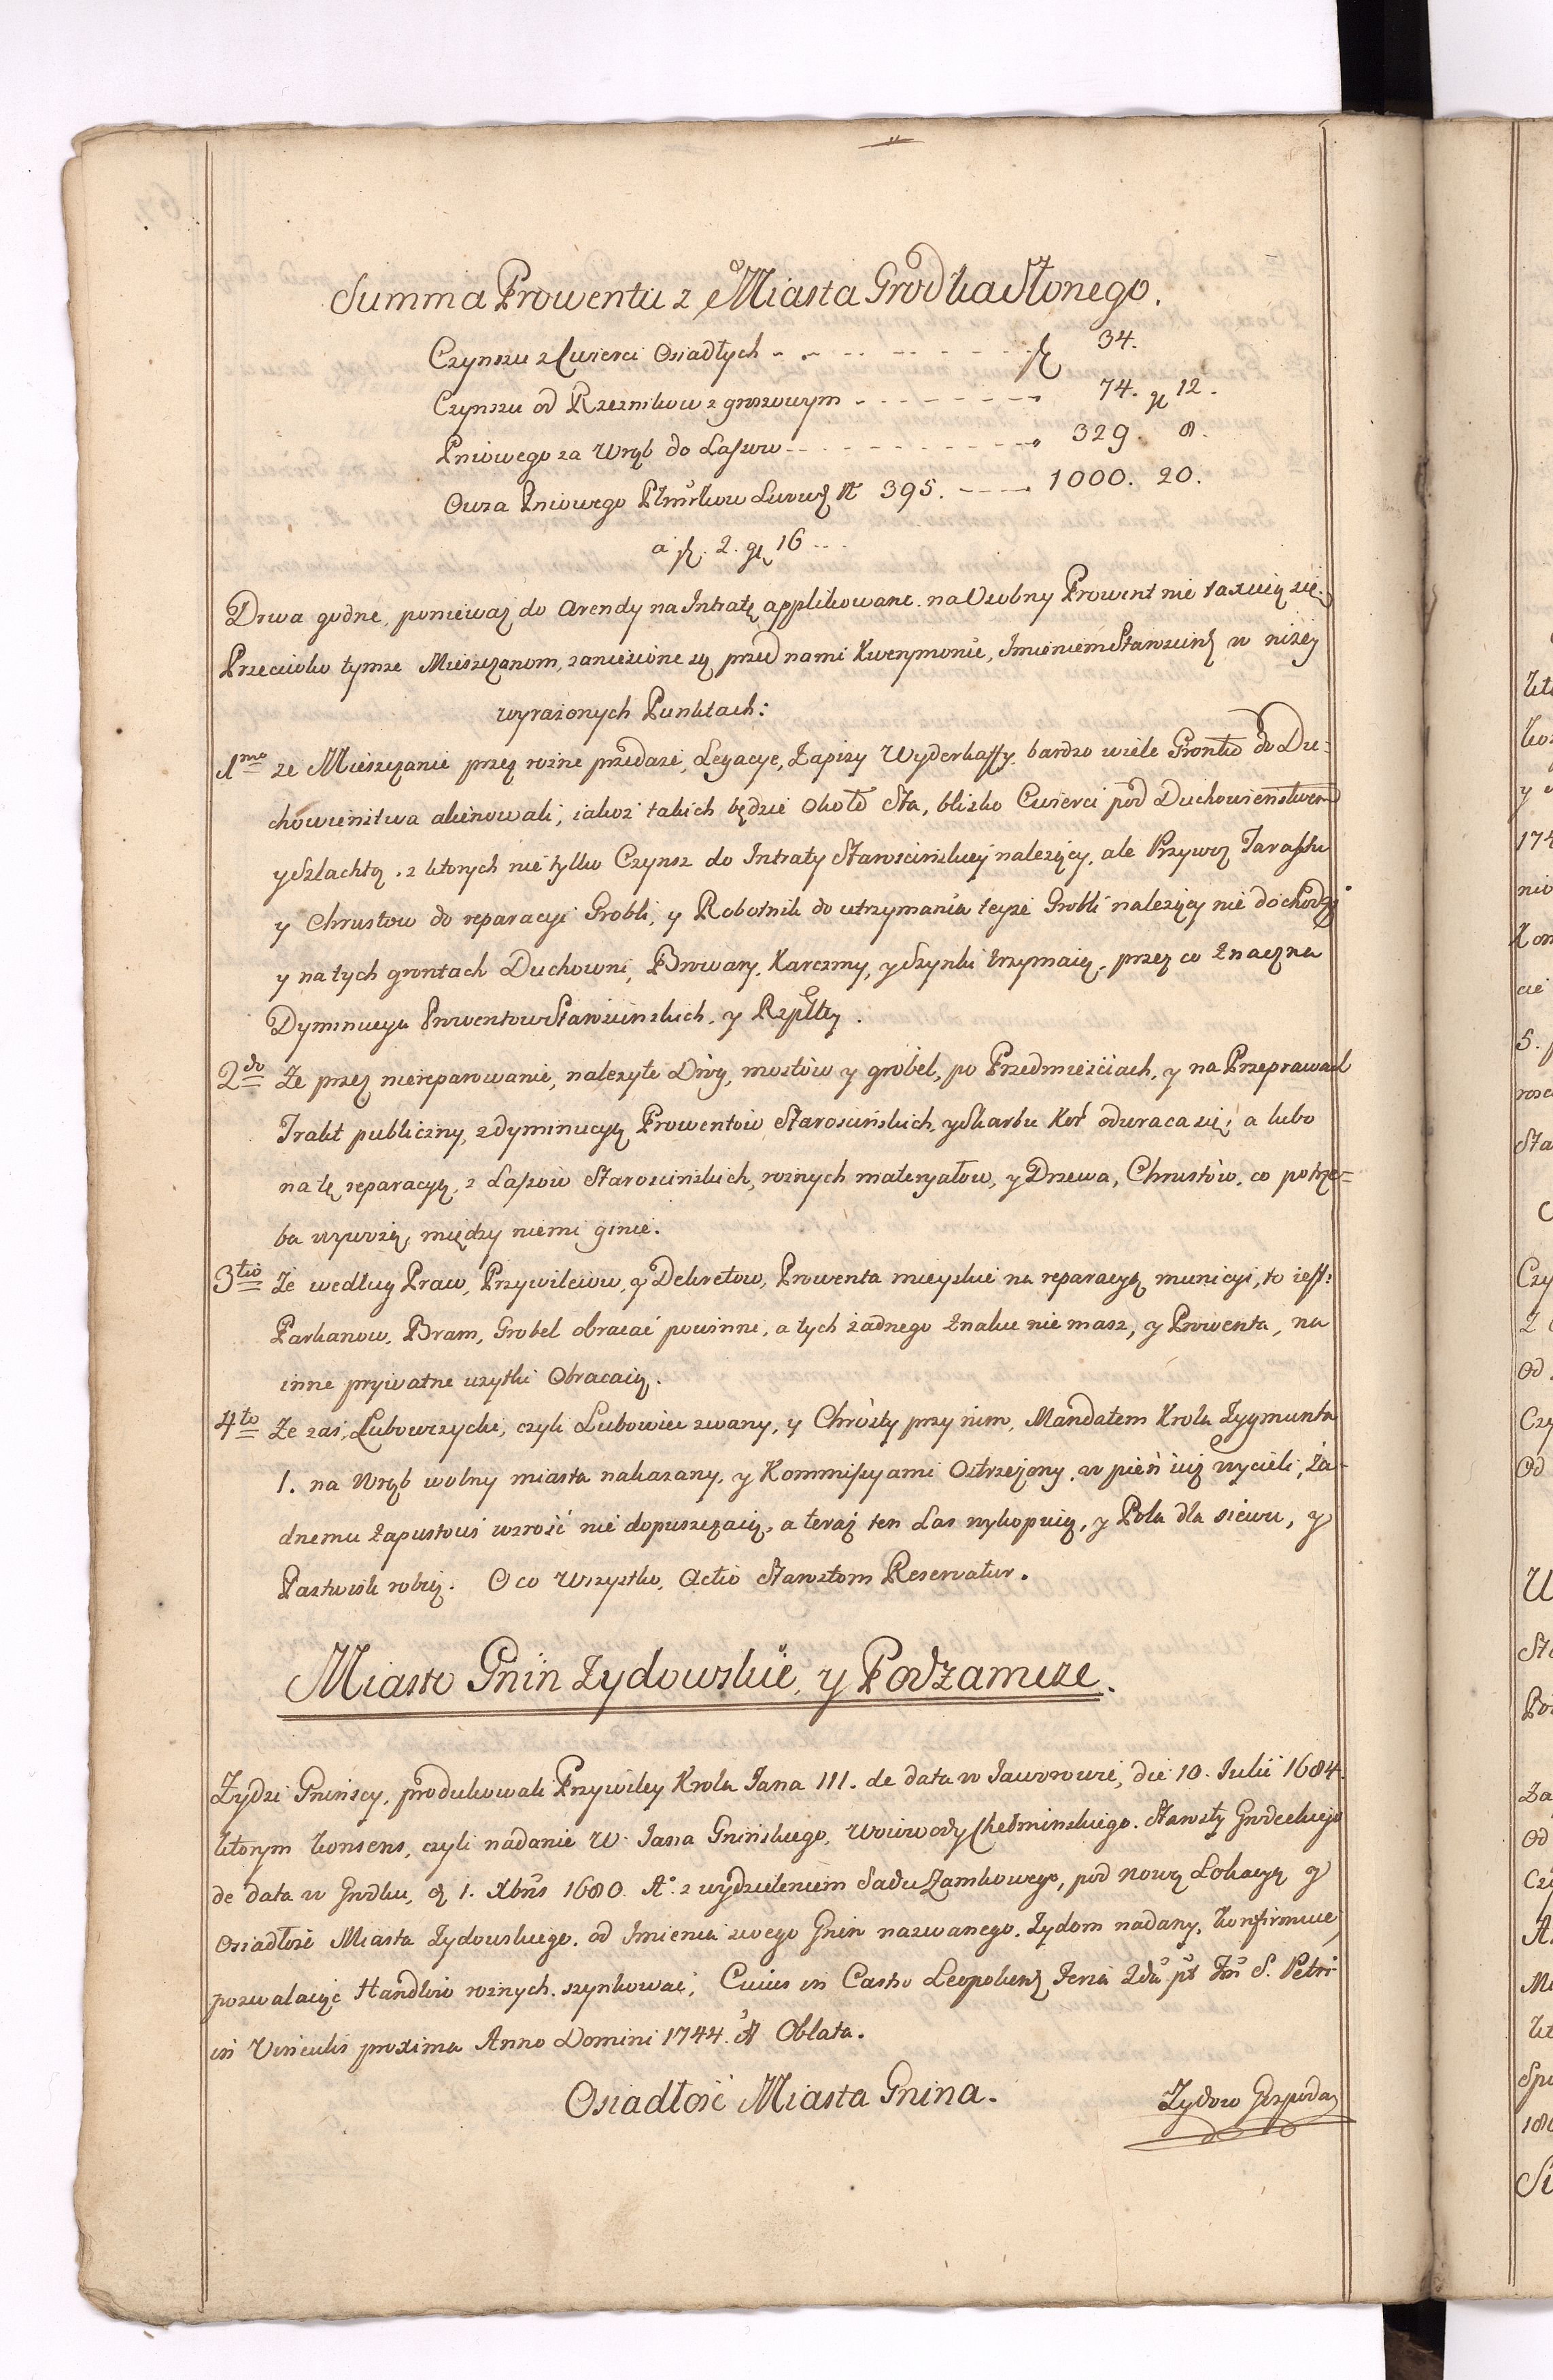 Summa Prowentu z Miasta Grodka Słonego.
Czynszu z Cwierci Osiadłych - - - - - - - fl 34.
Czynszu od Rzeznikow z groszowym - - - - - - 74. gr 12.
Pniowego za Wrąb do Lassow - - - - - - - 329. 8.
Owsa Pniowego Płuszkow Lwow: Nr 395. - - - 1000. 20.
a fl. 2. gr 16 - -
Drwa godne, poniewaz do Arendy na Intratę applikowane na Osobny Prowent nie taxuią się.
Przeciwko tymze Mieszczanom, zaniesione są przed nami Kwerymonie, Imieniem Staroscinskim w nizey
wyrazonych Punktach:
1mo ze Mieszczanie przez rozne przedaze, Legacye, Zapisy Wyderkaffy bardzo wiele Grontu do Du-
chowienstwa alienowali, iakoz takich będzie około Sta, blisko Cwierci pod Duchowienstwem
y Szlachtą, z ktorych nie tylko Czynsz do Intraty Staroscinskiey nalezący, ale Przywoz Tarassu
y Chrustow do reparacyi Grobli, y Robotnik do utrzymania teyze Grobli nalezący nie dochodzi
y na tych grontach Duchowni, Browary, Karczmy, y Szynki trzymaią, przez co znaczna
Dyminucya Prowentow Staroscinskich, y Rzpltey.
2do Ze przez niereparowanie, nalezyte Dróg, mostów y gróbel, po Przedmieściach, y na Przeprawach
Trakt publiczny, z dyminucyą Prowentów Staroscinskich, y Skarbu Kor odwraca się; a lubo
na tę reparacyą, z Lassów Staroscinskich, roznych materyałow, y Drzewa, Chrustów, co potrze-
ba wywozą, między niemi ginie.
3tio Ze według Praw, Przywileiow, y Dekretow, Prowenta mieyskie na reparacyą municyi, to iest:
Parkanow, Bram, Grobel obracać powinni, a tych zadnego znaku nie masz, y Prowenta, na
inne prywatne uzytki Obracaią.
4to Ze zas, Lubowczycki, czyli Lubowiec zwany, y Chrósty przy nim, Mandatem Krola Zygmunta
1. na Wrąb wolny miasta nakazany, y Kommissyami Ostrzezony, w pień iuz wycieli, za-
dnemu zapustowi wzrość nie dopuszczaią, a teraz ten Las wykopuią, y Pola dla siewu, y
Pastwisk robią. O co Wszystko, Actio Starostom Reservatur.
Miasto Gnin Zydowskie, y Podzamcze.
Zydzi Gninscy, produkowali Przywiley Krola Jana III. de data w Jaworowie, die 10. Julii 1684.
ktorym konsens, czyli nadanie W. Jana Gninskiego, Woiewody Chełminskiego, Starosty Grodeckiego
de data w Grodku, d 1. Xbris 1680. Ao z wydzieleniem Sadu Zamkowego, pod nową Lokacyą y
Osiadłość Miasta Zydowskiego, od Imienia swego Gnin nazwanego, Zydom nadany, konfirmuie,
pozwalaiąc Handlów roznych, szynkować; Cuius in Castro Leopoliens: Feria 2da pt Fm S. Petri
in Vinculis proxima Anno Domini 1744. Oblata.
Osiadłość Miasta Gnina.
Zydow Gospoda